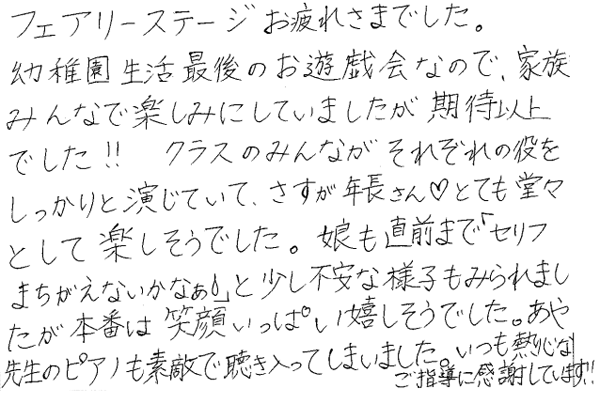 フェアリーステージお疲れさまでした。
幼稚園生活最後のお遊戯会なので、家族
みんなで楽しみにしていましたが期待以上
でした!! クラスのみんながそれぞれの役を
しっかりと演じていて、さすが年長さん♡とても堂々
として楽しそうでした。娘も直前まで「セリフ
まちがえないかなぁ」と少し不安な様子もみられまし
たが本番は笑顔いっぱい嬉しそうでした。あや
先生のピアノも素敵で聴き入ってしまいました。いつも熱心な
ご指導に感謝しています!!